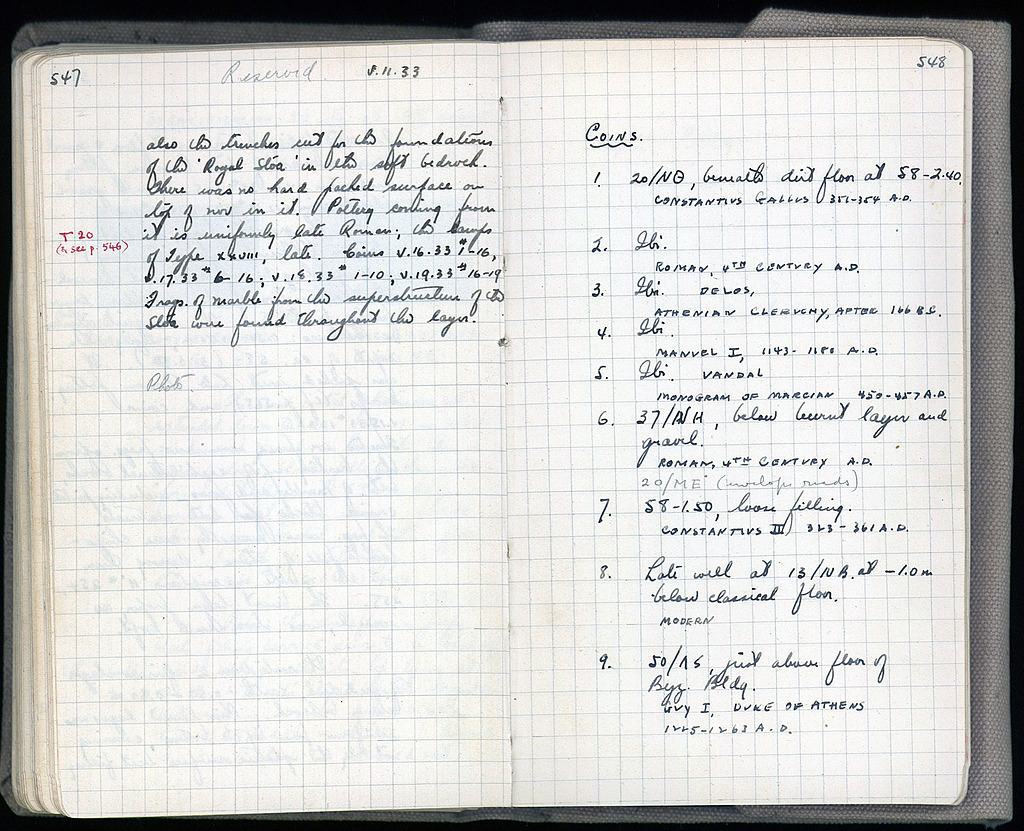 547
Reserved. V.11.33
also the trenches cut for the foundations
of the 'Royal Stoa' in the soft bedrock.
There was no hard packed surface on
top of nor in it. Pottery coming from
T 20
it is uniformly late Roman; the lamps
(& see p. 546)
of Type XXVIII, late. Coins V.16.33 # 1-16,
V.17.33 # 6-16; V.18.33 # 1-10; V.19.33 # 16-19
Frags. of marble from the superstructure of the
Stoa were found throughout the layer.
Photo.
548
COINS.
1. 20/ΝΘ, beneath dirt floor at 58-2.40.
CONSTANTIUS GALLUS 351-354 A.D.
2. Ibi.
ROMAN, 4TH CENTURY A.D.
3. Ibi. DELOS,
ATHENIAN CLERUCHY, AFTER 166 B.C.
4. Ibi.
MANUEL I, 1143-1180 A.D.
5. Ibi. VANDAL
MONOGRAM OF MARCIAN 450-457 A.D.
6. 37/ΛΗ, below burnt layer and
gravel.
ROMAN, 4TH CENTURY A.D.
20/ΜΕ (envelope reads)
7. 58-1.50, loose filling.
CONSTANTIUS II, 323-361 A.D.
8. Late well at 13/ΝΒ. at -1.0m
below classical floor.
MODERN
9. 50/ΛΣ, just above floor of
Byz. Bldg.
GUY I, DUKE OF ATHENS
1225-1263 A.D.